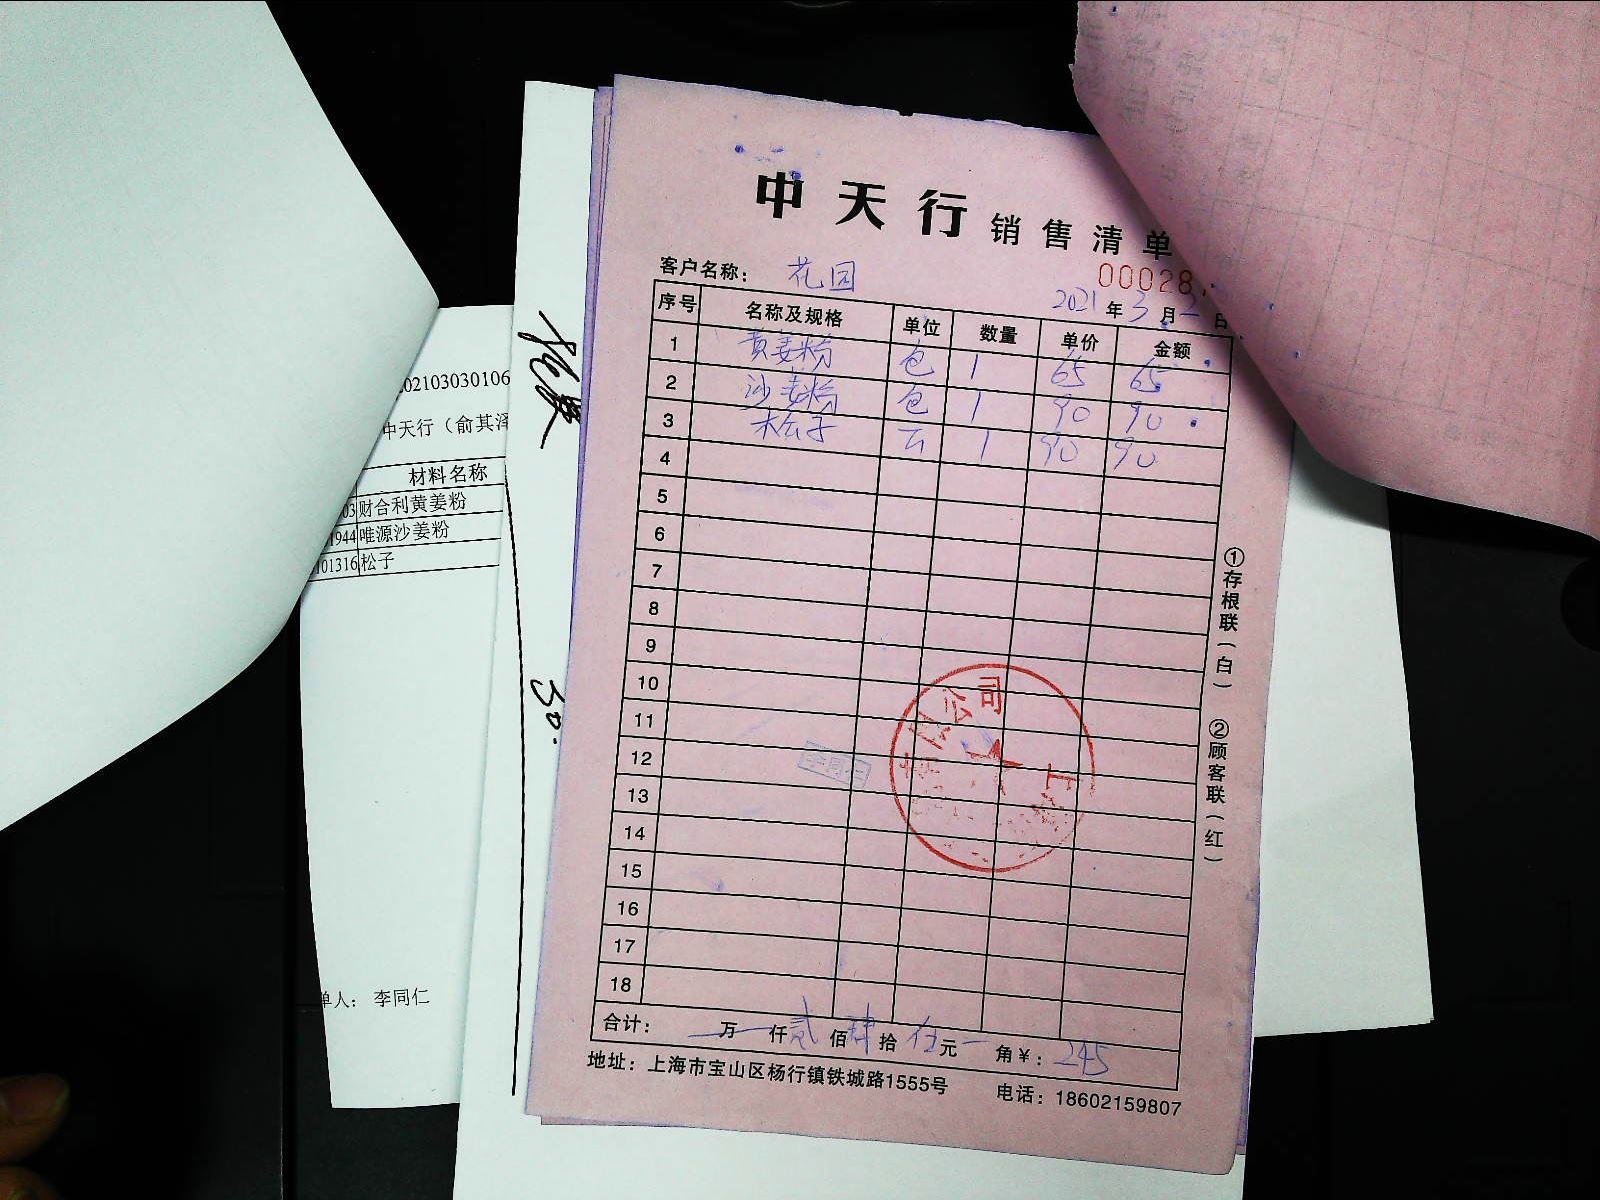 中天行 销售清单
00028
客户名称： 花园
2021 年 3 月 2 日
序号 名称及规格 单位 数量 单价 金额
1 黄姜粉 包 1 65 65
2 沙姜粉 包 1 90 90
3 松子 1 90 90
4
5
6
7
8
9
10
11
12
13
14
15
16
17
18
合计： 万 仟 贰 佰 肆 拾 伍 元 角 ¥： 245
地址：上海市宝山区杨行镇铁城路1555号 电话：18602159807
①存根联（白） ②顾客联（红）
公司
上
202103030106
中天行（俞其泽
材料名称
03 财合利黄姜粉
1944 唯源沙姜粉
101316 松子
单人： 李同仁